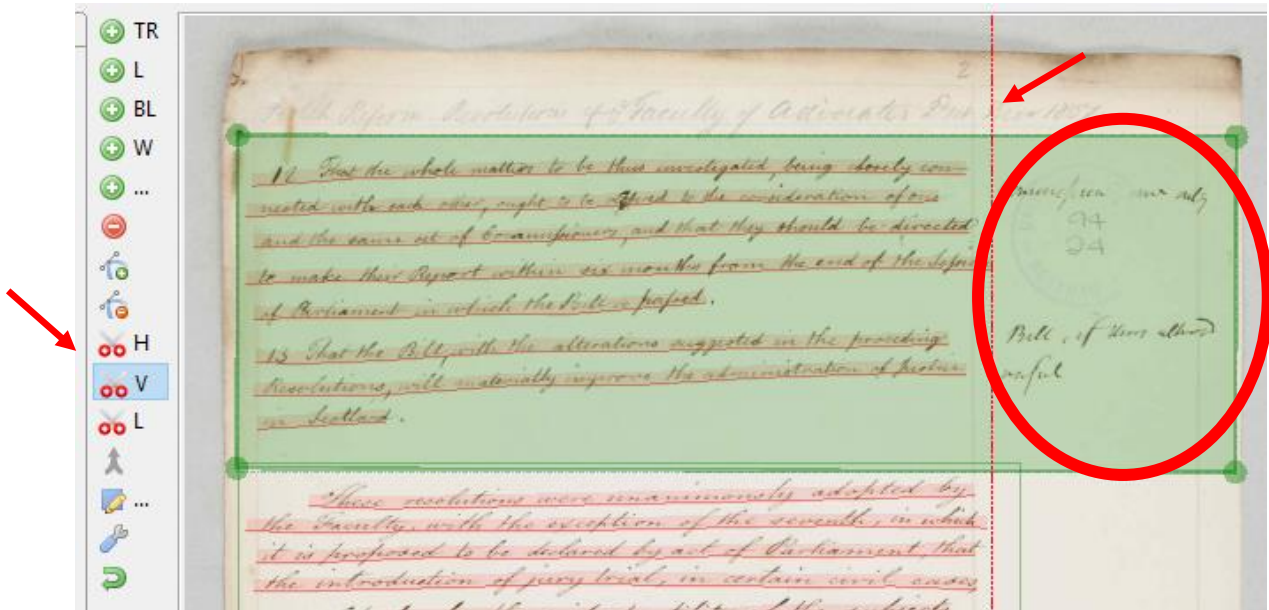 TR
L
BL
W
...
H
V
L
...
2
Resolutions of Faculty of Advocates
12 That the whole matters to be thus investigated, being closely con-
nected with each other, ought to be referred to the consideration of one
and the same set of Commissioners, and that they should be directed
to make their Report within six months from the end of the Session
of Parliament in which the Bill is passed.
94
94
13 That the Bill, with the alterations suggested in the preceding
Resolutions, will materially improve the administration of Justice
in Scotland.
Bill, if thus altered
useful
These resolutions were unanimously adopted by
the Faculty, with the exception of the seventh, in which
it is proposed to be declared by act of Parliament, that
the introduction of jury trial, in certain civil cases